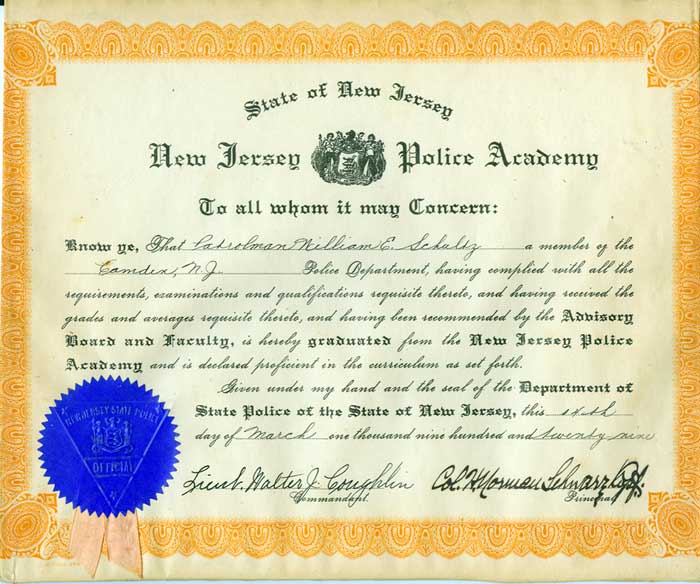 State of New Jersey
New Jersey Police Academy
To all whom it may Concern:
Know ye, That Patrolman William E. Schultz a member of the
Camden, N.J. Police Department, having complied with all the
requirements, examinations and qualifications requisite thereto, and having received the
grades and averages requisite thereto, and having been recommended by the Advisory
Board and Faculty, is hereby graduated from the New Jersey Police
Academy and is declared proficient in the curriculum as set forth.
Given under my hand and the seal of the Department of
State Police of the State of New Jersey, this sixth
day of March one thousand nine hundred and twenty nine
Lieut. Walter J. Coughlin Col. H Norman Schwarzkopf
Commandant. Principal
NEW JERSEY STATE POLICE
OFFICIAL